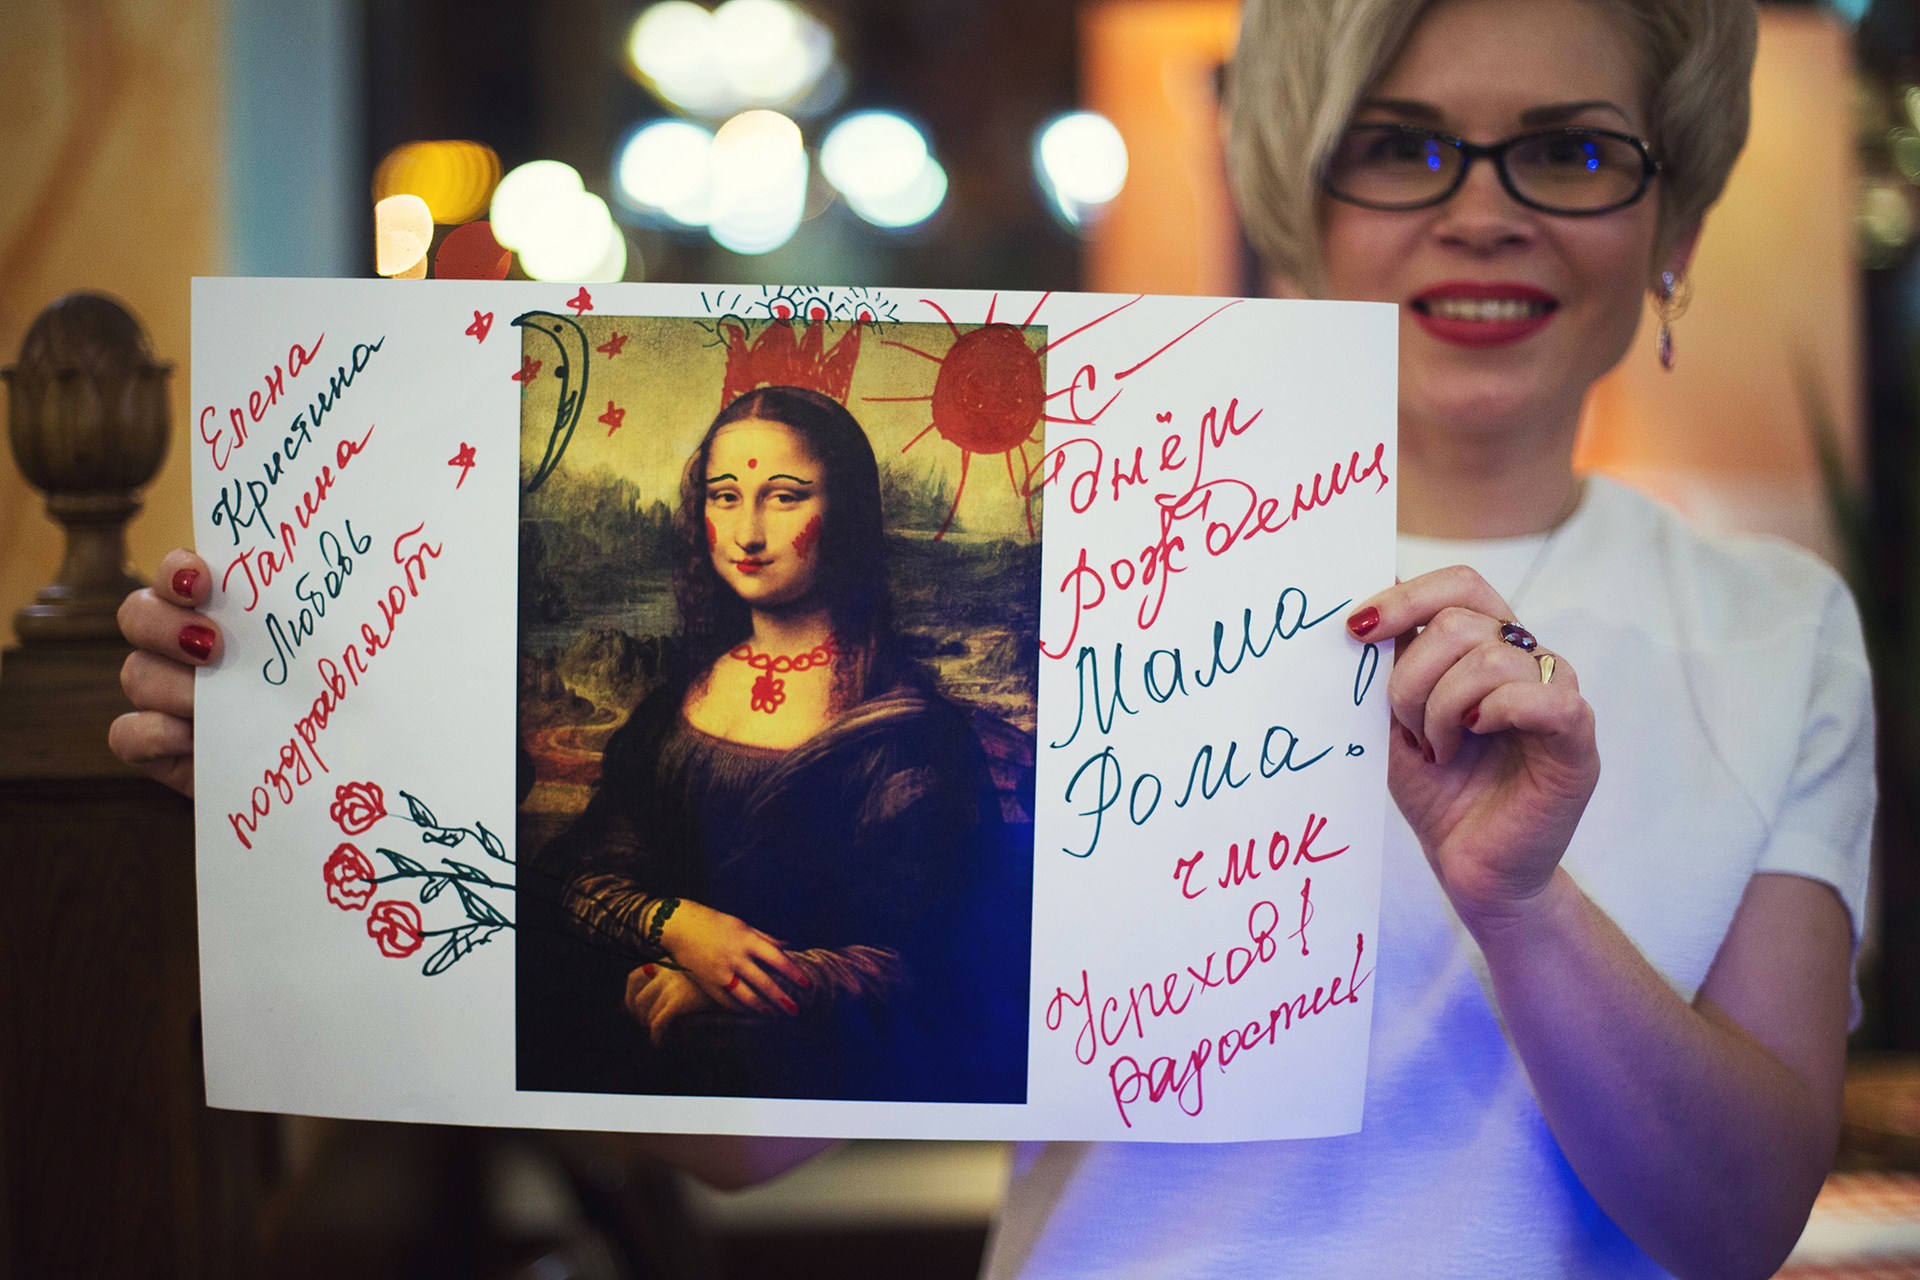 Елена
Кристина
Галина
Любовь
поздравляют
С
днём
рождения
Мама
Рома!
чмок
Успехов!
радости!